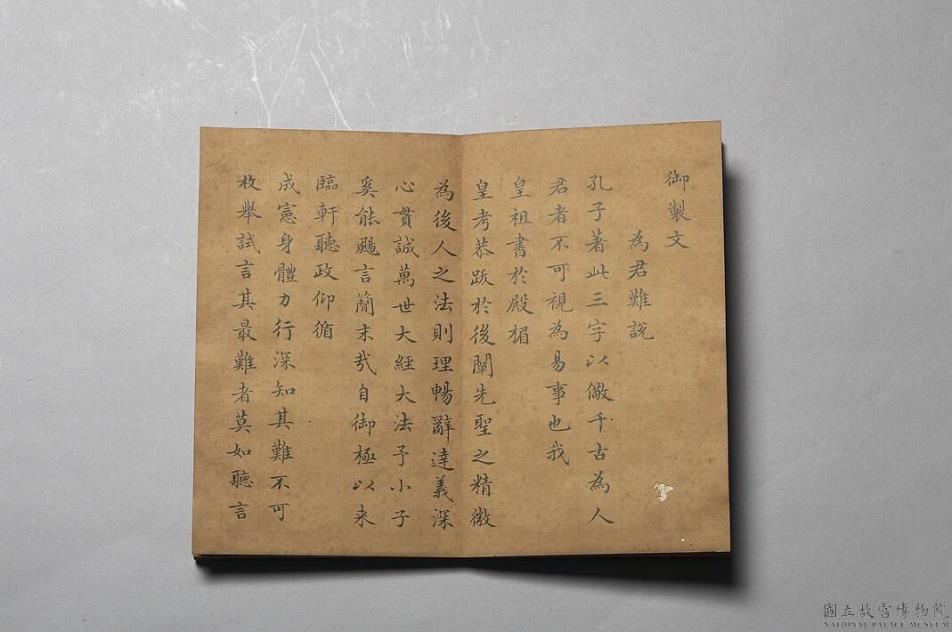 御製文
為君難說
孔子著此三字以儆千古為人
君者不可視為易事也我
皇祖書於殿楣
皇考恭跋於後闡先聖之精微
為後人之法則理暢辭達義深
心貫誠萬世大經大法予小子
奚能颺言簡末哉自御極以来
臨軒聽政仰循
成憲身體力行深知其難不可
枚舉試言其最難者莫如聽言
國立故宮博物院
NATIONAL PALACE MUSEUM